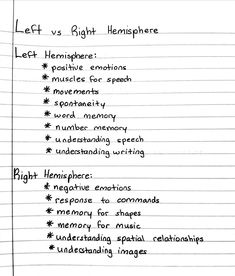 Left vs Right Hemisphere
Left Hemisphere:
* positive emotions
* muscles for speech
* movements
* spontaneity
* word memory
* number memory
* understanding speech
* understanding writing
Right Hemisphere:
* negative emotions
* response to commands
* memory for shapes
* memory for music
* understanding spatial relationships
* understanding images